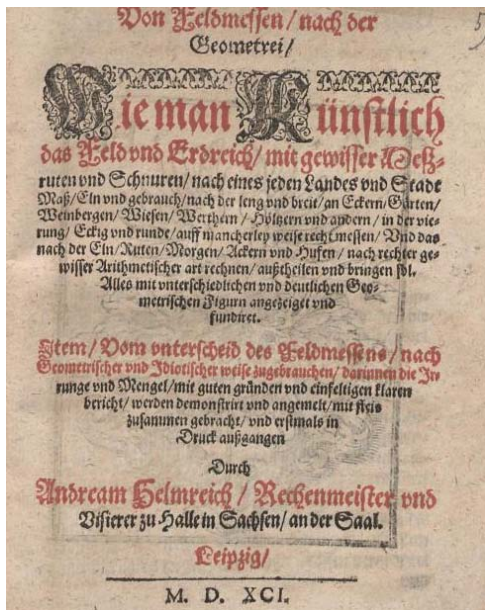 Von Feldmessen / nach der
Geometrei /
Wie man Künstlich
das Feld vnd Erdreich / mit gewisser Meß-
ruten vnd Schnuren / nach eines jeden Landes vnd Stadt
Maß / Eln vnd gebrauch / nach der leng vnd breit / an Eckern / Gärten /
Weinbergen / Wiesen / Werthern / Höltzern vnd andern / in der vie-
rung / Eckig vnd runde / auff mancherley weise recht messen / Vnd das
nach der Eln / Ruten / Morgen / Ackern vnd Hufen / nach rechter ge-
wisser Arithmetischer art rechnen / außtheilen vnd bringen sol.
Alles mit vnterschiedlichen vnd deutlichen Geo-
metrischen Figurn angezeiget vnd
fundiret.
Item / Vom vnterscheid des Feldmessens / nach
Geometrischer vnd Idiotischer weise zugebrauchen / darinnen die Ir-
runge vnd Mengel / mit guten gründen vnd einfeltigen klaren
bericht / werden demonstrirt vnd angemelt / mit fleis
zusammen gebracht / vnd erstmals in
Druck außgangen
Durch
Andream Helmreich / Rechenmeister vnd
Visierer zu Halle in Sachsen / an der Saal.
Leipzig /
M. D. XCI.